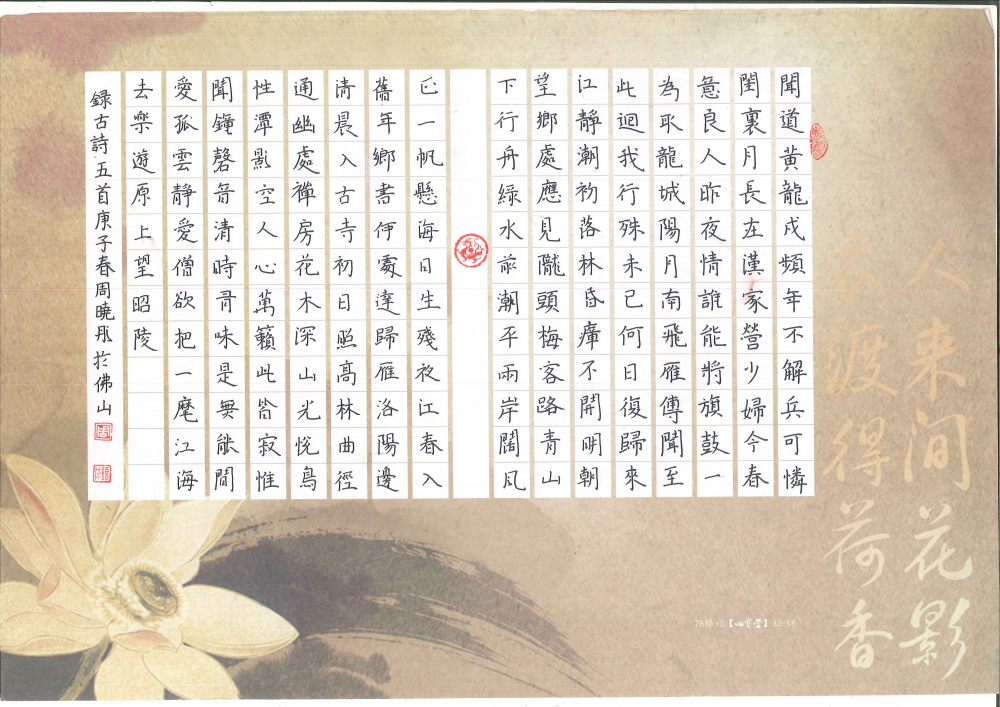 人来间花影
衣渡得荷香
聞道黃龍戍頻年不解兵可憐
閨裏月長在漢家營少婦今春
意良人昨夜情誰能將旗鼓一
為取龍城陽月南飛雁傳聞至
此迴我行殊未已何日復歸來
江靜潮初落林昏瘴不開明朝
望鄉處應見隴頭梅客路青山
下行舟綠水前潮平兩岸闊風
正一帆懸海日生殘夜江春入
舊年鄉書何處達歸雁洛陽邊
清晨入古寺初日照高林曲徑
通幽處禪房花木深山光悅鳥
性潭影空人心萬籟此皆寂惟
聞鐘磬音清時有味是無能閒
愛孤雲靜愛僧欲把一麾江海
去樂遊原上望昭陵
録古詩五首庚子春周曉彤於佛山